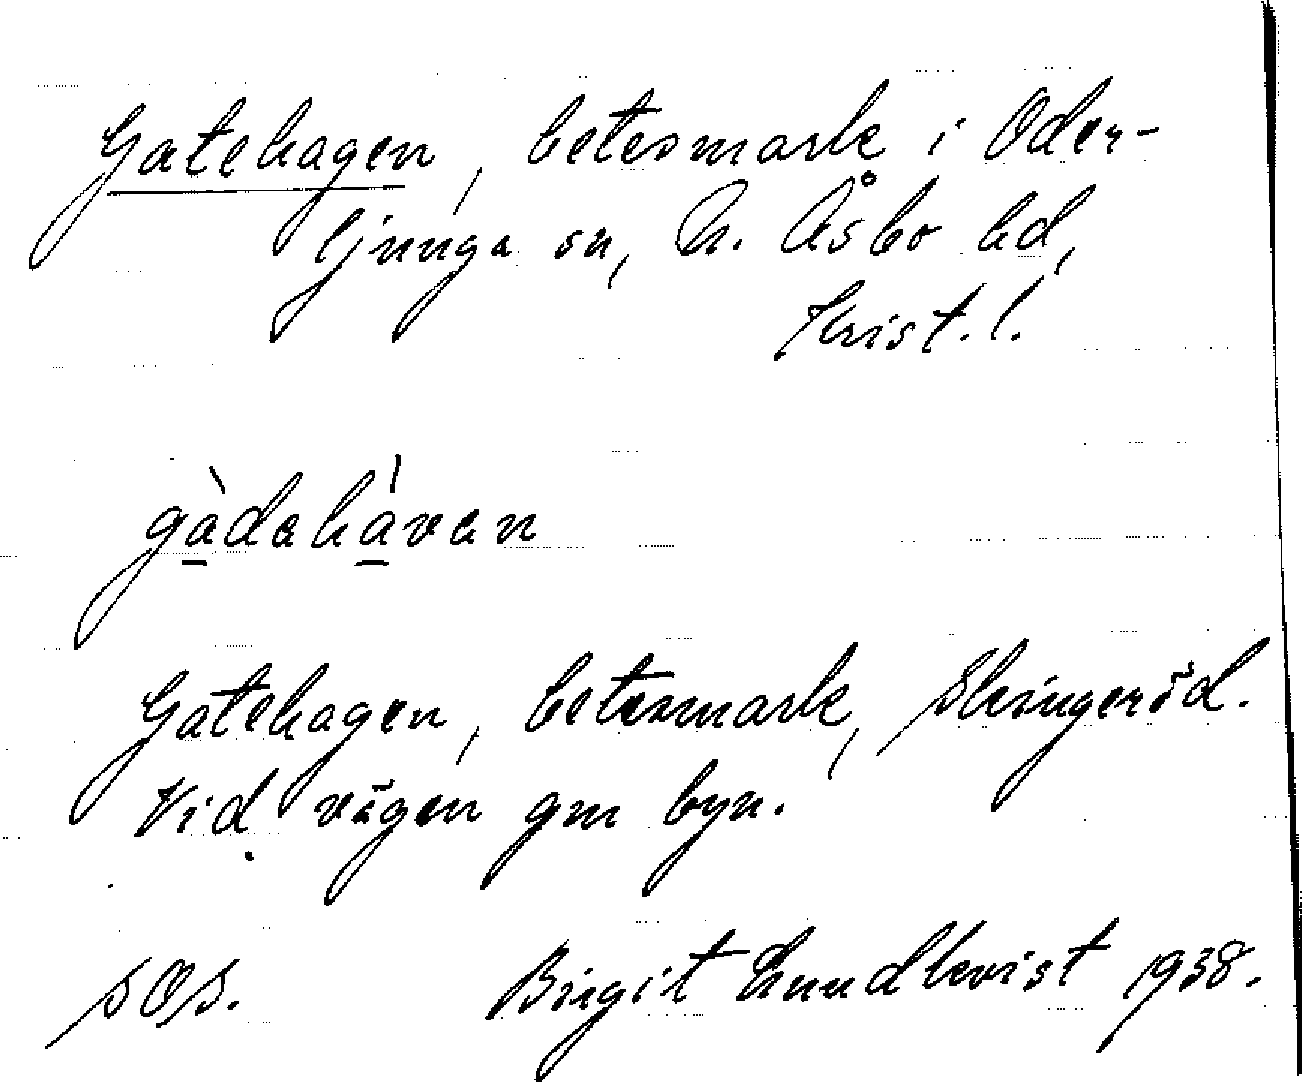 Gatehagen, betesmark i Oder-
ljunga sn, N. Åsbo hd,
Krist. l.
gàdahávan
Gatehagen, betesmark, Skingeröd.
Vid vägen gm byn.
SOS. Birgit Lundkvist 1938.